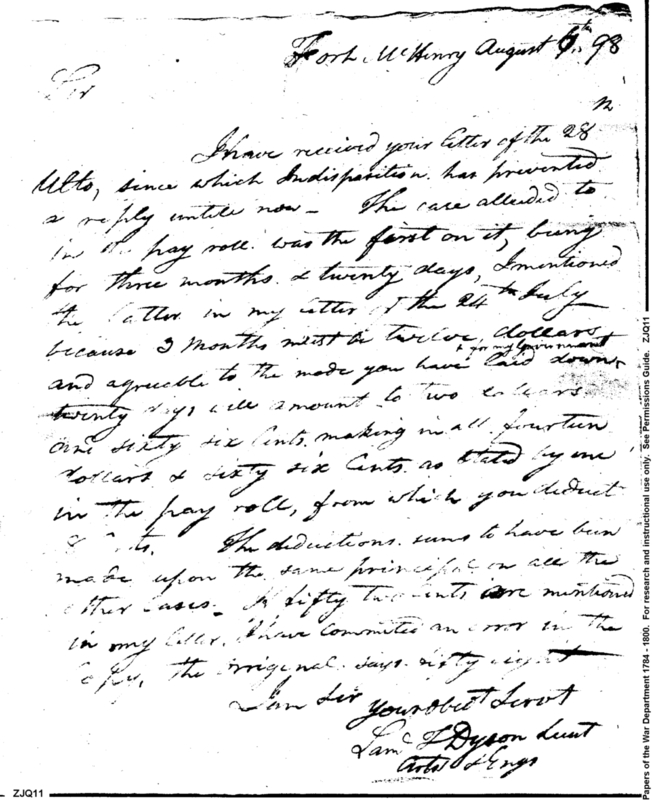 Fort McHenry August 7th. 98
Sir
I have received your letter of the 28
Ulto, since which Indisposition has prevented
a reply untile now _ The case alluded to
in the pay roll was the first on it, being
for three months & twenty days, I mentioned
the latter in my letter of the 24th July
because 3 Months must be twelve dollars
and agreeble to the mode you have laid down
for my Government
twenty days will amount to two dollars
and sixty six Cents. making in all fourteen
dollars & sixty six Cents. as stated by me
in the pay roll, from which you deduct
The deductions seems to have been
made upon the same principal on all the
other cases _ If fifty two cents are mentioned
in my letter, I have committed an error in the
Copy, the original says sixty eight
I am Sir
your Obedt Servt
Saml T Dyson Lieut
Arts & Engs
ZJQ11
Papers of the War Department 1784 - 1800. For research and instructional use only. See Permissions Guide. ZJQ11